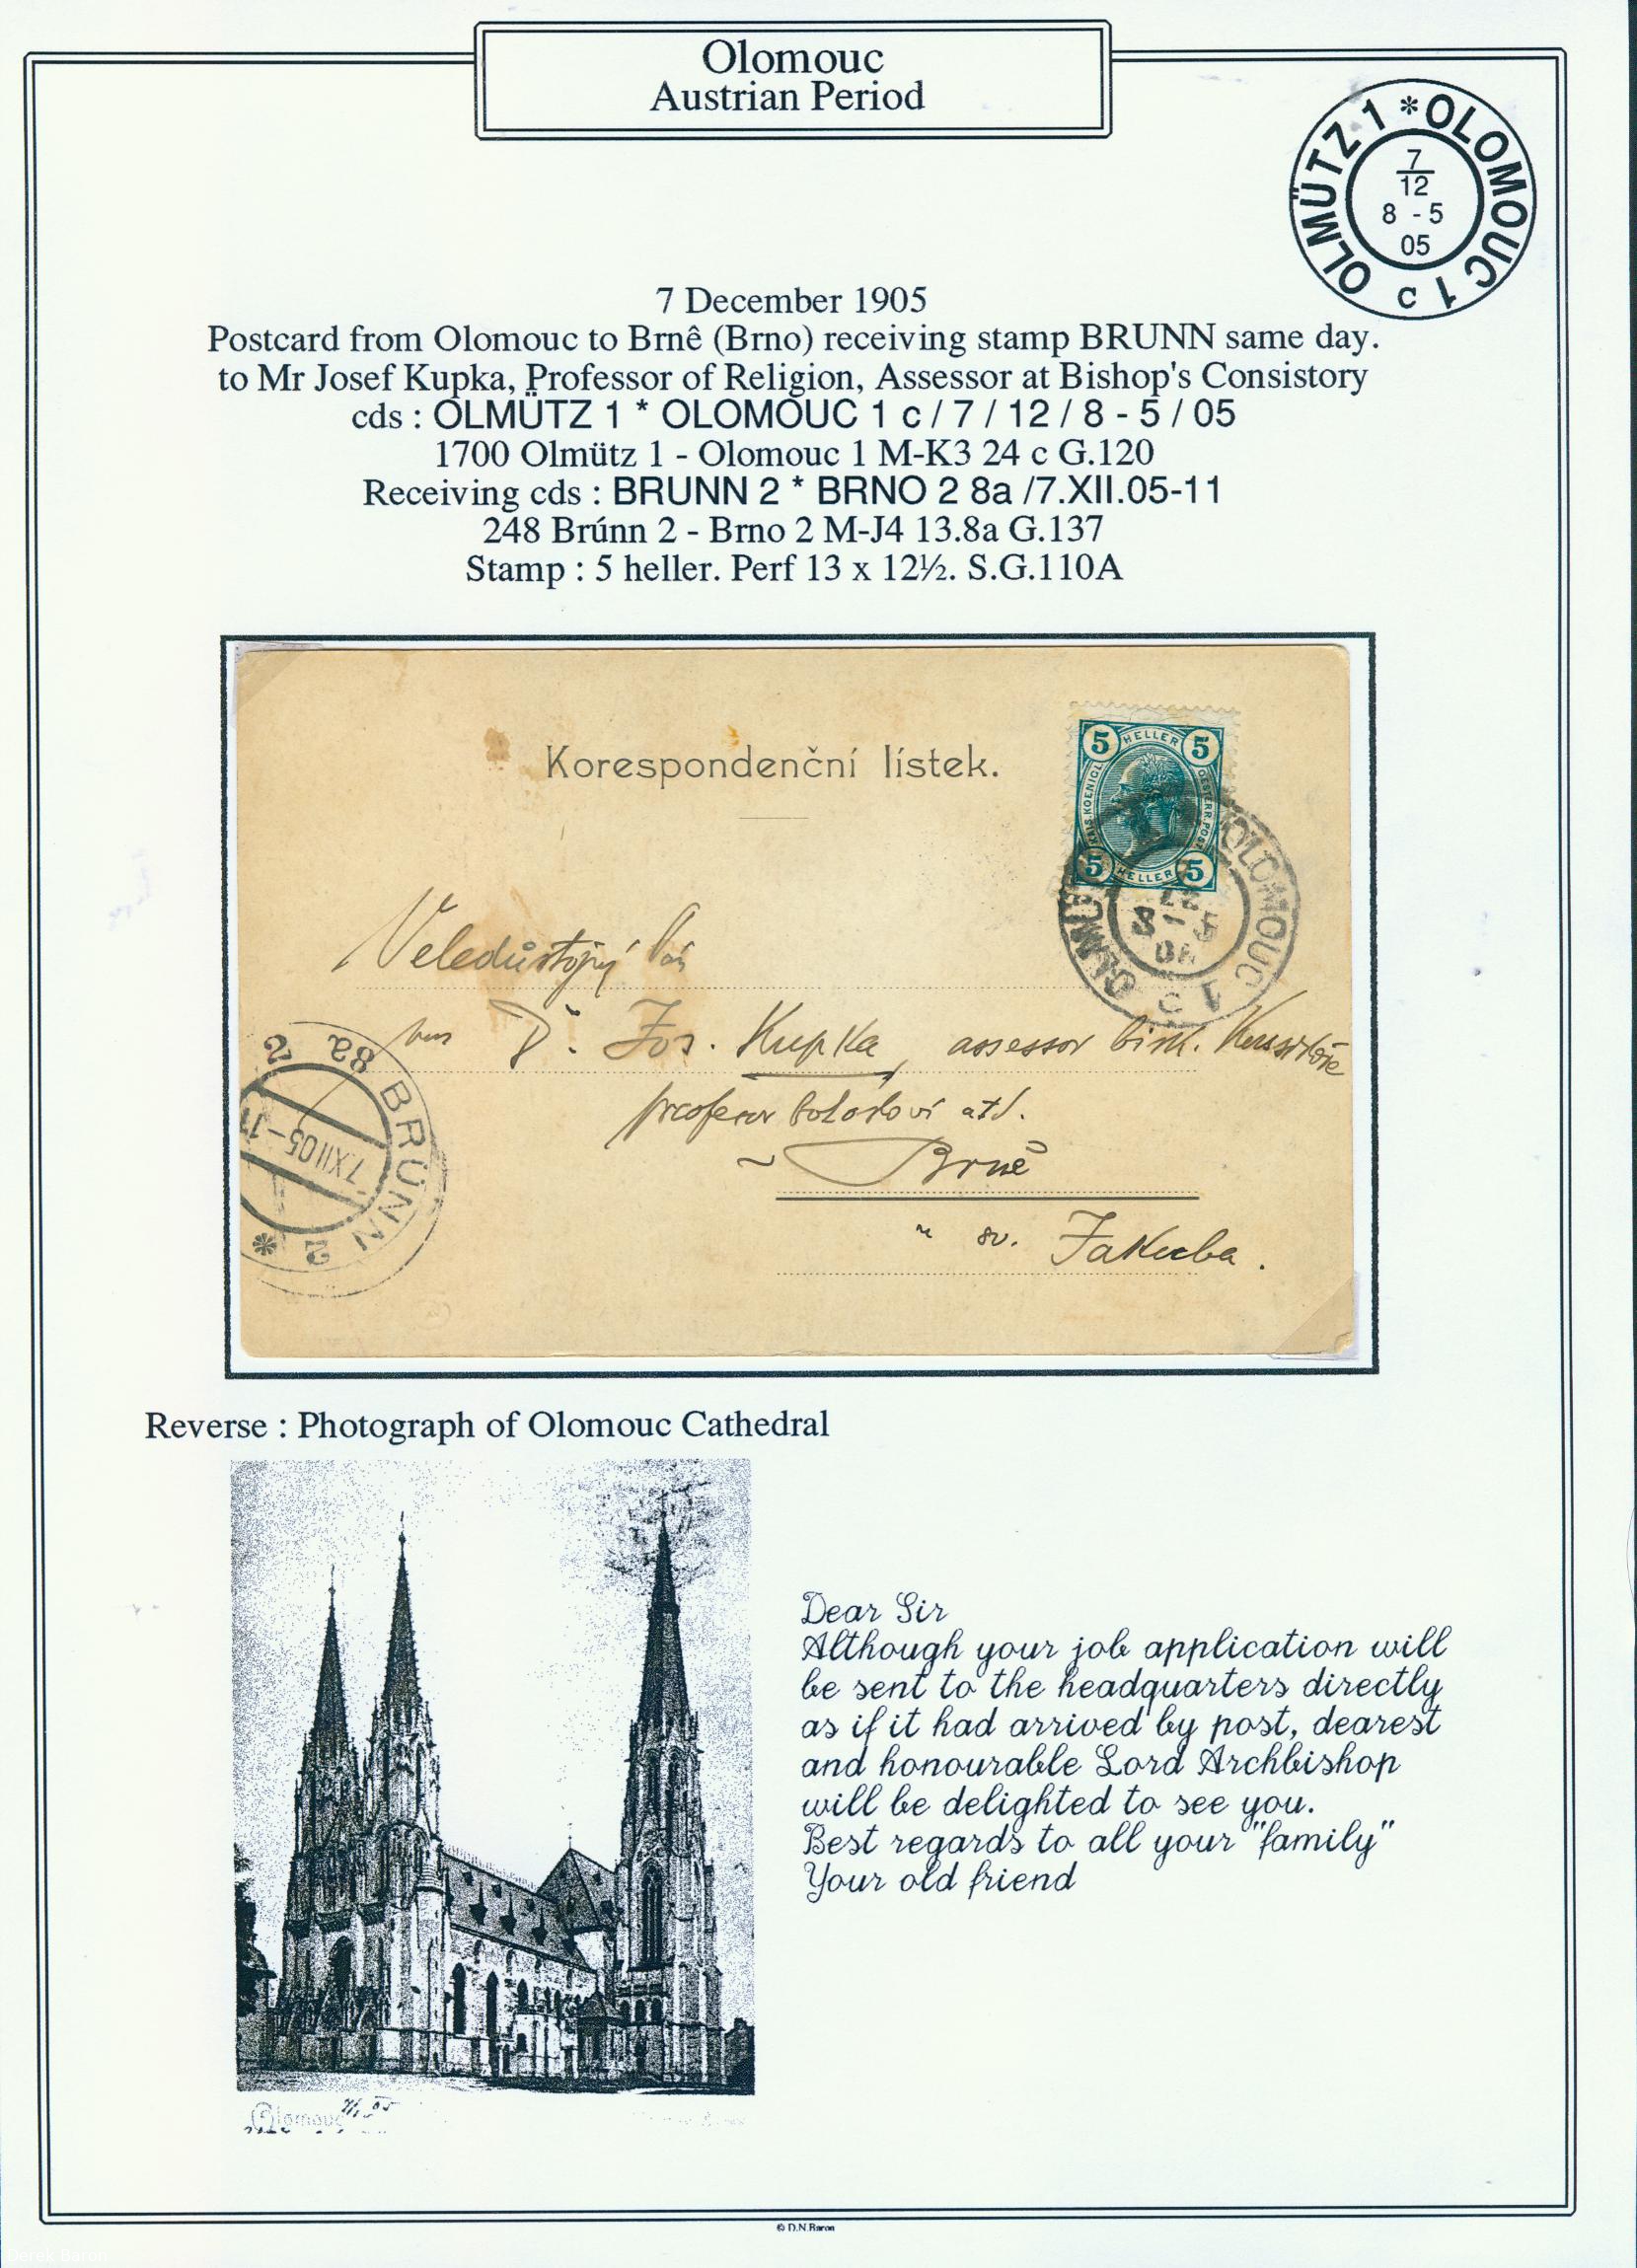 Olomouc
Austrian Period
OLMÜTZ 1 * OLOMOUC 1 c
7
12
8 - 5
05
7 December 1905
Postcard from Olomouc to Brnê (Brno) receiving stamp BRUNN same day.
to Mr Josef Kupka, Professor of Religion, Assessor at Bishop's Consistory
cds : OLMÜTZ 1 * OLOMOUC 1 c / 7 / 12 / 8 - 5 / 05
1700 Olmütz 1 - Olomouc 1 M-K3 24 c G.120
Receiving cds : BRUNN 2 * BRNO 2 8a /7.XII.05-11
248 Brúnn 2 - Brno 2 M-J4 13.8a G.137
Stamp : 5 heller. Perf 13 x 12½. S.G.110A
5 HELLER 5
KAIS. KOENIGL. OESTERR. POST
5 HELLER 5
Korespondenční lístek.
OLOMOUC 1 c
8 - 5
Veledůstojný Pán
Dr. Jos. Kupka, assessor bisk.
2 8a BRÜNN 2 *
7.XII.05-11
profesor atd.
Brně
u sv. Jakuba.
Reverse : Photograph of Olomouc Cathedral
Dear Sir
Although your job application will
be sent to the headquarters directly
as if it had arrived by post, dearest
and honourable Lord Archbishop
will be delighted to see you.
Best regards to all your "family"
Your old friend
Olomouc
© D.N.Baron
Derek Baron